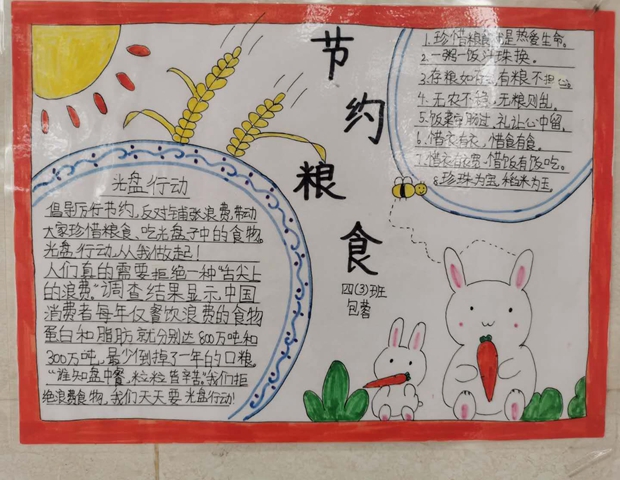 节约粮食
四(3)班
包蓉
光盘行动
倡导厉行节约,反对铺张浪费,带动
大家珍惜粮食、吃光盘子中的食物。
光盘行动从我做起!
人们真的需要拒绝一种“舌尖上
的浪费。”调查结果显示,中国
消费者每年仅餐饮浪费的食物
蛋白和脂肪就分别达800万吨和
300万吨,最少倒掉了一年的口粮。
“谁知盘中餐,粒粒皆辛苦。”我们拒
绝浪费食物,我们天天要光盘行动!
1.珍惜粮食 是热爱生命。
2.一粥一饭 珠换。
3.存粮如 有粮不
4.无农不 无粮则乱。
5.饭桌 过,礼让心中留。
6.惜衣有衣,惜食有食。
7.惜衣有衣穿,惜饭有饭吃。
8.珍珠为宝,稻米为玉